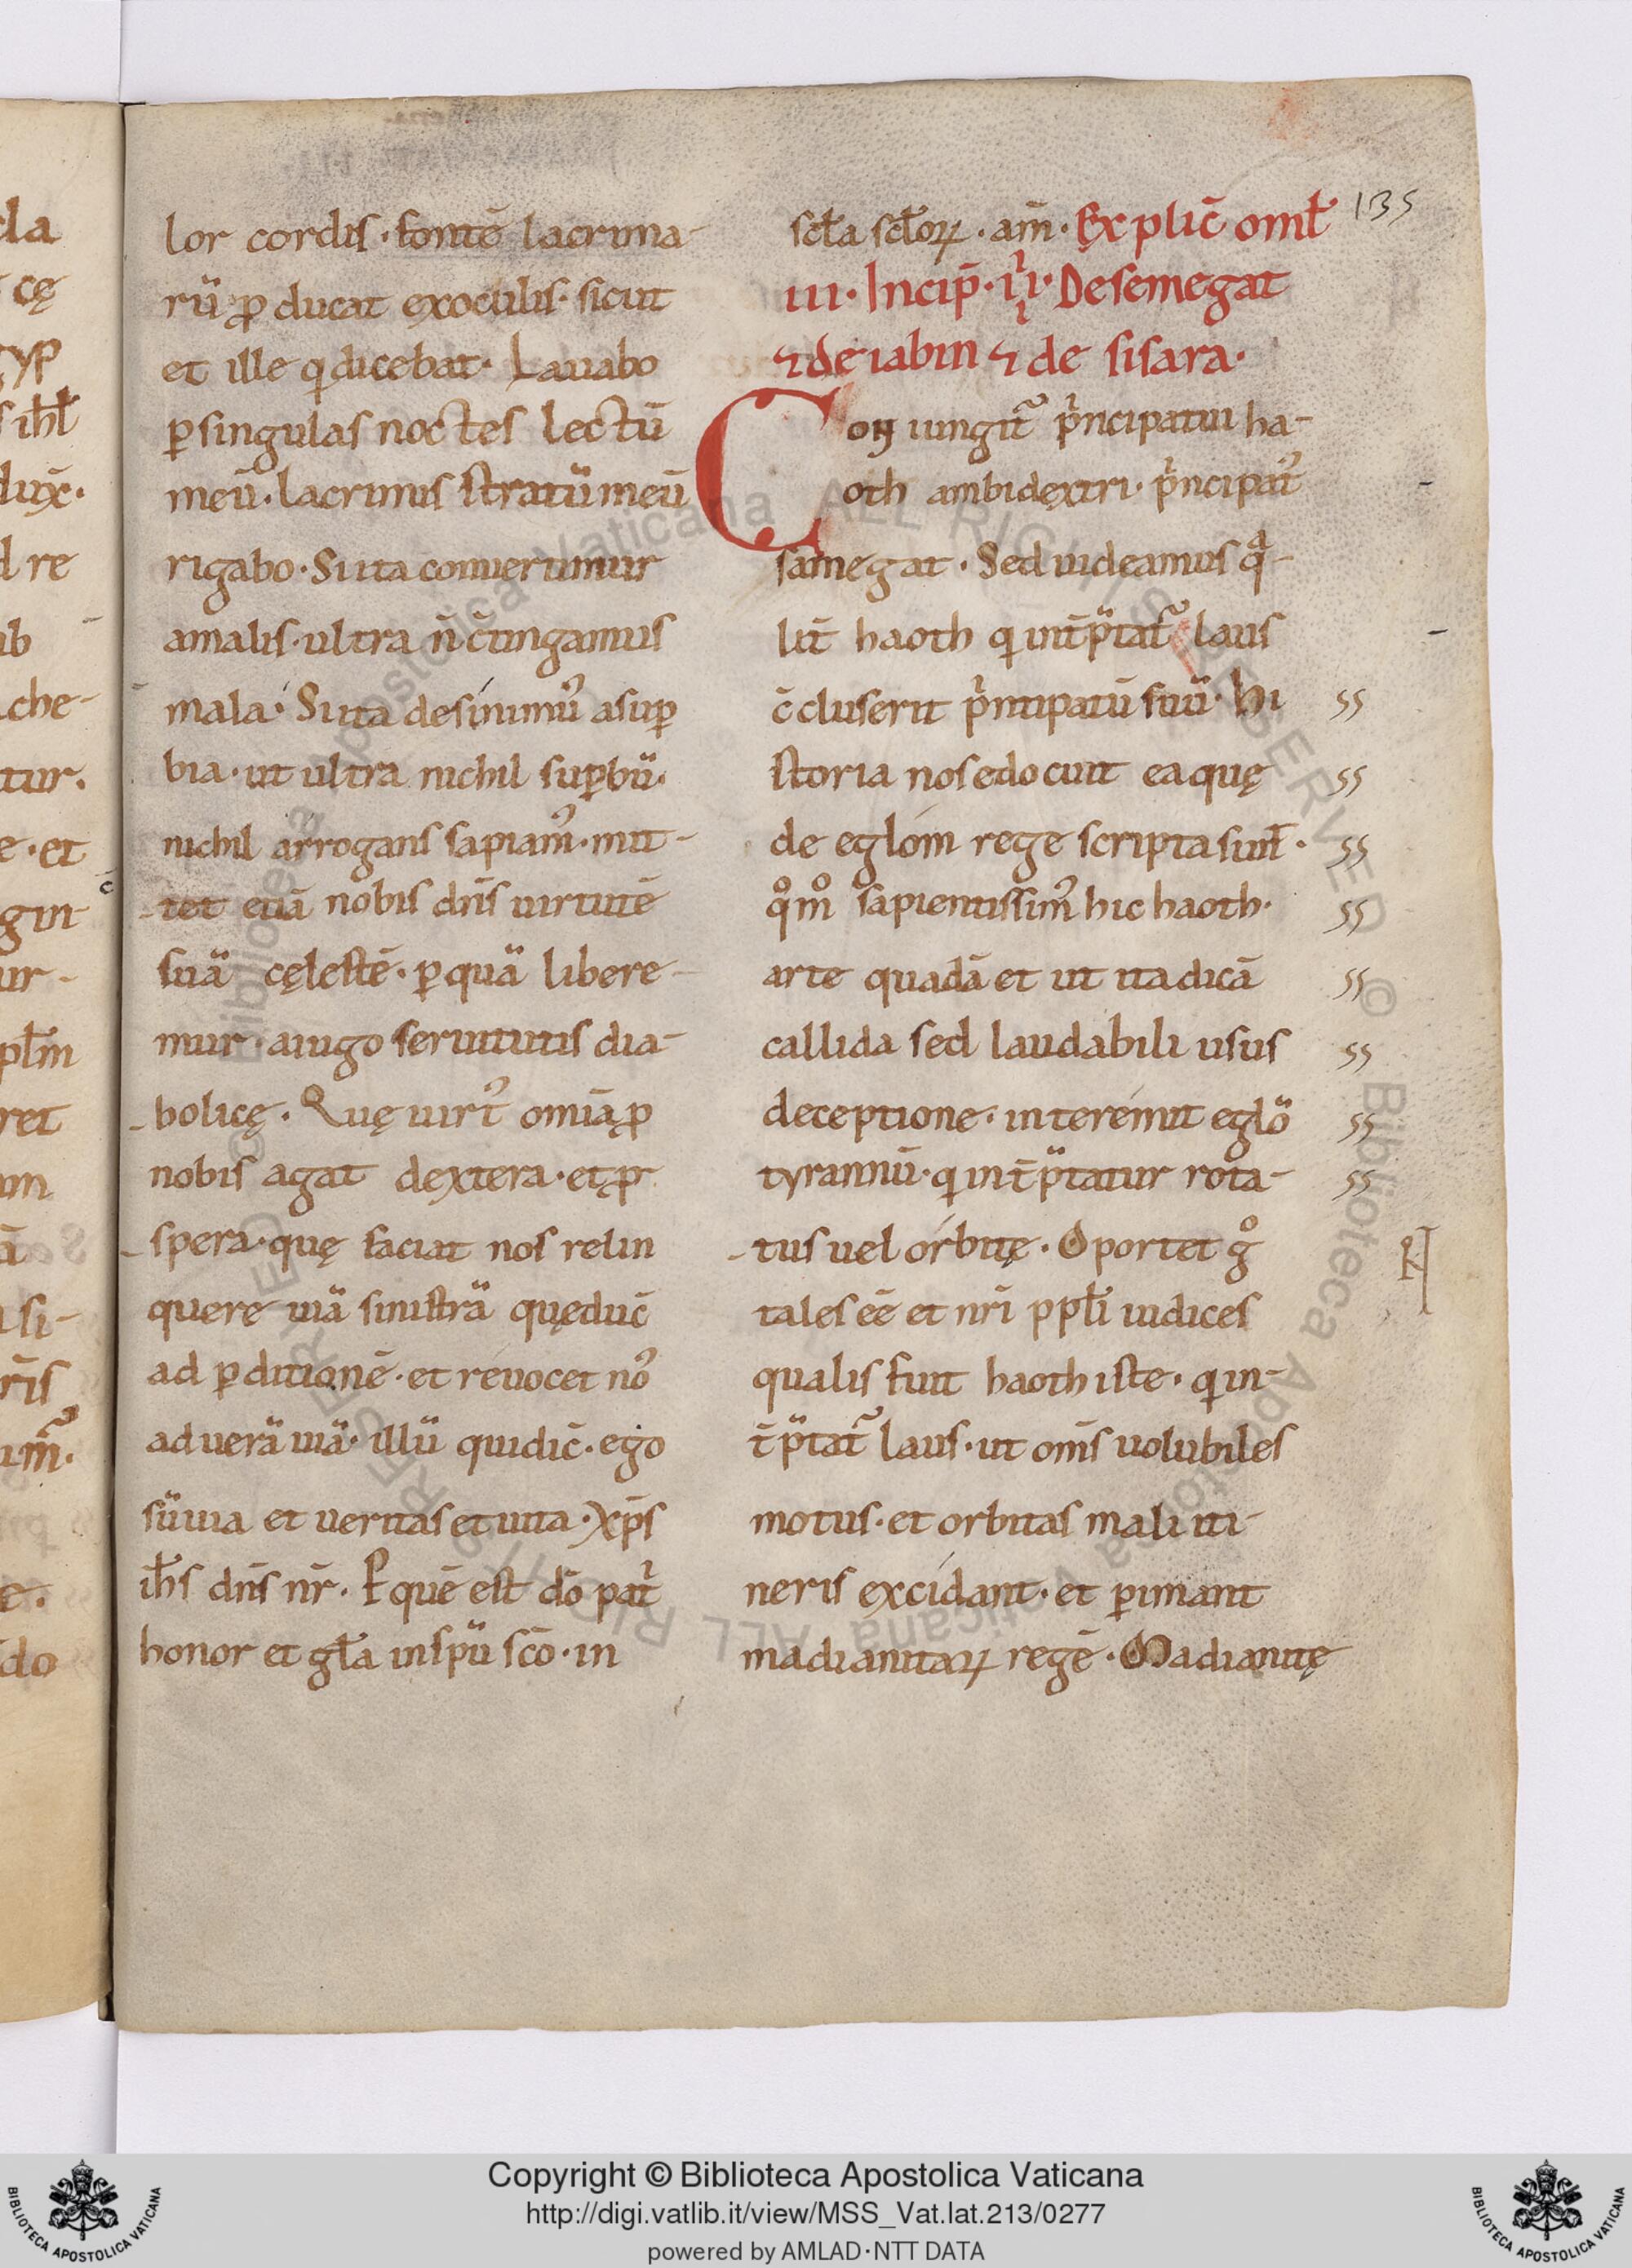 135
lor cordis · fontē lacrima-
rū ꝓducat exoculis · sicut
et ille q dicebat · Lauabo
ꝑ singulas noctes lectū
meū · lacrimis stratū meū
rigabo · Si ita conuertimur
amalis · ultra n̄ c̄tingamus
mala · Si ita desinimꝰ asuꝑ
bia · ut ultra nichil suꝑbū ·
nichil arrogans sapiamꝰ · mit-
tet etiā nobis dn̄s uirtutē
suā cęlestē · ꝑ quā libere-
mur · aiugo seruitutis dia-
bolicę · Quę uirtꝰ om̄ia ꝓ
nobis agat dextera · et ꝓ
spera · quę faciat nos relin
quere uiā sinistrā quę duc̄
ad ꝑditionē · et reuocet noꝰ
ad uerā uiā · illū qui dic̄ · ego
sū uia et ueritas et uita · xp̄s
ih̄s dn̄s nr̄ · Ꝑ quē est dō patͥ
honor et gl̄a in sp̄ū sc̄o · in
scl̄a scl̄oꝝ · am̄ · Explic̄ oml̄
III · Incip̄ · IIII · De semegat
⁊ de iabin ⁊ de sisara ·
Coniungit᷑ pͥncipatui ha-
oth ambidextri · pͥncipatꝰ
samegat · Sed uideamus qͣ-
lit̄ haoth q int̄p̄tat᷑ laus
c̄cluserit pͥntipatū suū · Hi
storia nos edocuit ea quę
de eglom rege scripta sunt̄ ·
qͦmͦ sapientissimꝰ hic haoth ·
arte quadā et ut ita dicā
callida sed laudabili usus
deceptione · interemit eglō
tyrannū · q int̄p̄tatur rota-
tus uel orbitę · Oportet gͦ
tales eē et nr̄i ppl̄i iudices
qualis fuit haoth iste · q in-
t̄p̄tat᷑ laus · ut om̄s uolubiles
motus · et orbitas mali iti-
neris excidant · et ꝑimant
madianitaꝝ regē · Madianitę
Copyright © Biblioteca Apostolica Vaticana
http://digi.vatlib.it/view/MSS_Vat.lat.213/0277
powered by AMLAD·NTT DATA